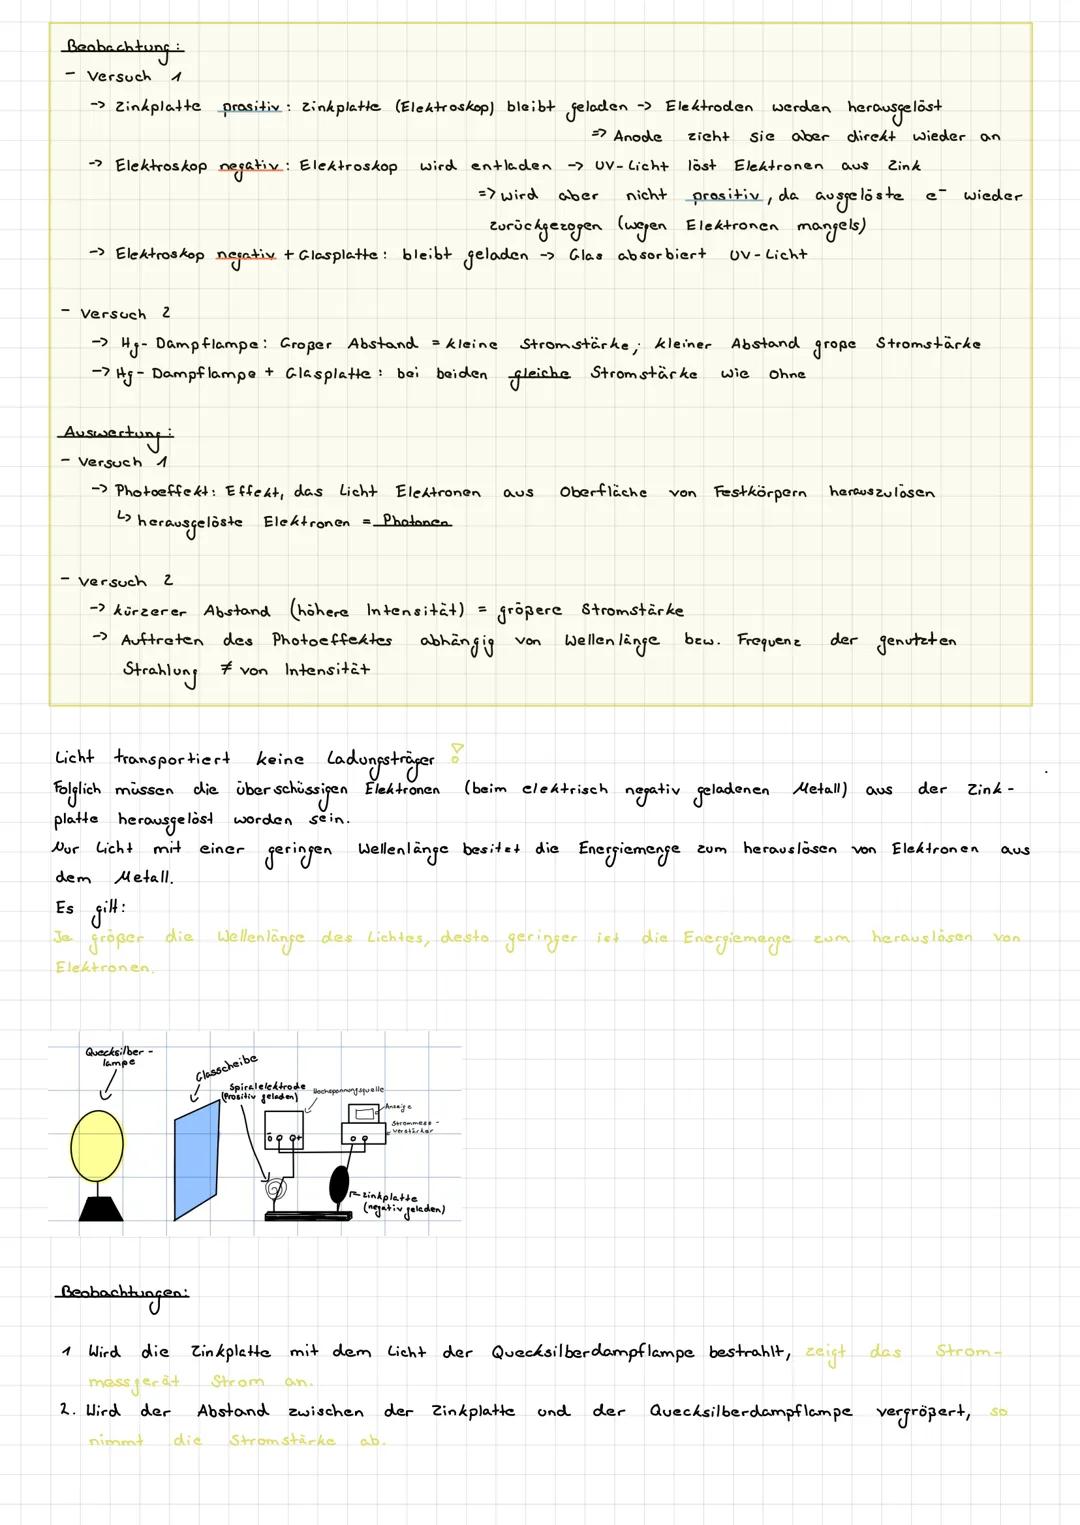 Beobachtung:
- Versuch 1
-> Zinkplatte prositiv: Zinkplatte (Elektroskop) bleibt geladen -> Elektroden werden herausgelöst
=> Anode zieht sie aber direkt wieder an
-> Elektroskop negativ: Elektroskop wird entladen -> UV-Licht löst Elektronen aus Zink
=> wird aber nicht prositiv, da ausgelöste e⁻ wieder
zurückgezogen (wegen Elektronen mangels)
-> Elektroskop negativ + Glasplatte: bleibt geladen -> Glas absorbiert UV-Licht
- Versuch 2
-> Hg-Dampflampe: Großer Abstand = kleine Stromstärke; kleiner Abstand große Stromstärke
-> Hg-Dampflampe + Glasplatte: bei beiden gleiche Stromstärke wie ohne
Auswertung:
- Versuch 1
-> Photoeffekt: Effekt, das Licht Elektronen aus Oberfläche von Festkörpern herauszulösen
↳ herausgelöste Elektronen = Photonen
- Versuch 2
-> kürzerer Abstand (höhere Intensität) = größere Stromstärke
-> Auftreten des Photoeffektes abhängig von Wellenlänge bzw. Frequenz der genutzten
Strahlung ≠ von Intensität
Licht transportiert keine Ladungsträger !
Folglich müssen die überschüssigen Elektronen (beim elektrisch negativ geladenen Metall) aus der Zink-
platte herausgelöst worden sein.
Nur Licht mit einer geringen Wellenlänge besitzt die Energiemenge zum herauslösen von Elektronen aus
dem Metall.
Es gilt:
Je größer die Wellenlänge des Lichtes, desto geringer ist die Energiemenge zum herauslösen von
Elektronen.
Quecksilber-
lampe
Glasscheibe
Spiralelektrode
(Prositiv geladen)
Hochspannungsquelle
Anzeige
Strommess-
verstärker
Zinkplatte
(negativ geladen)
Beobachtungen:
1 Wird die Zinkplatte mit dem Licht der Quecksilberdampflampe bestrahlt, zeigt das Strom-
messgerät Strom an.
2. Wird der Abstand zwischen der Zinkplatte und der Quecksilberdampflampe vergrößert, so
nimmt die Stromstärke ab.